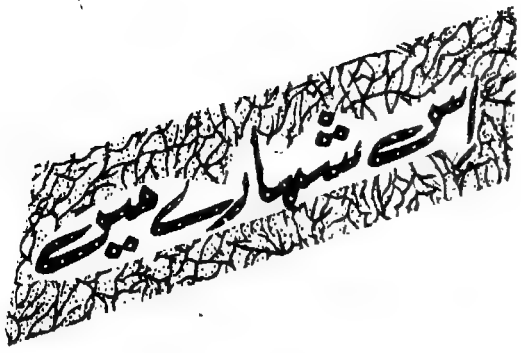 اس شمارے میں